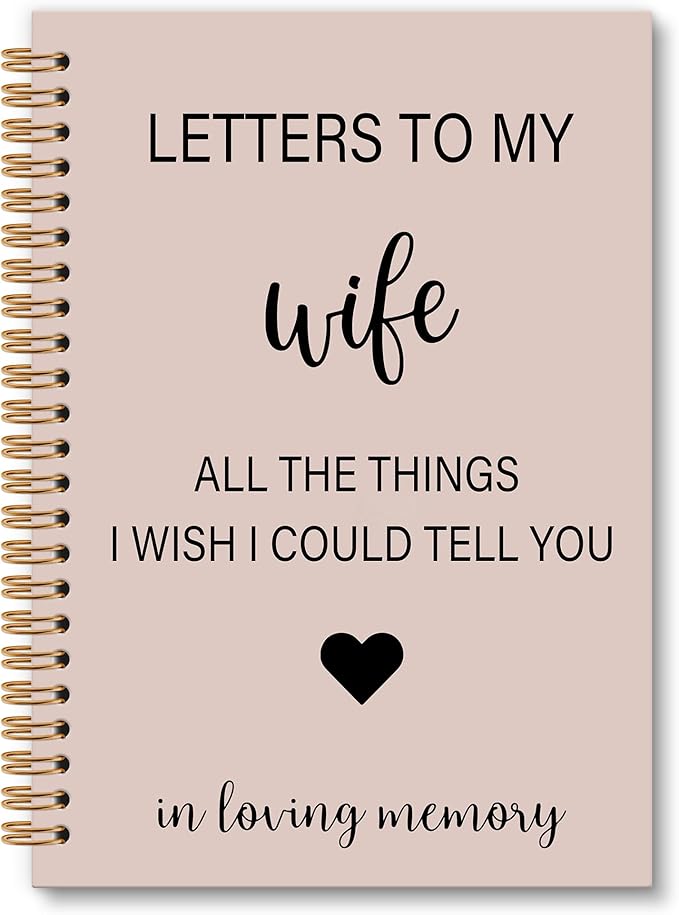 LETTERS TO MY
wife
ALL THE THINGS
I WISH I COULD TELL YOU
in loving memory